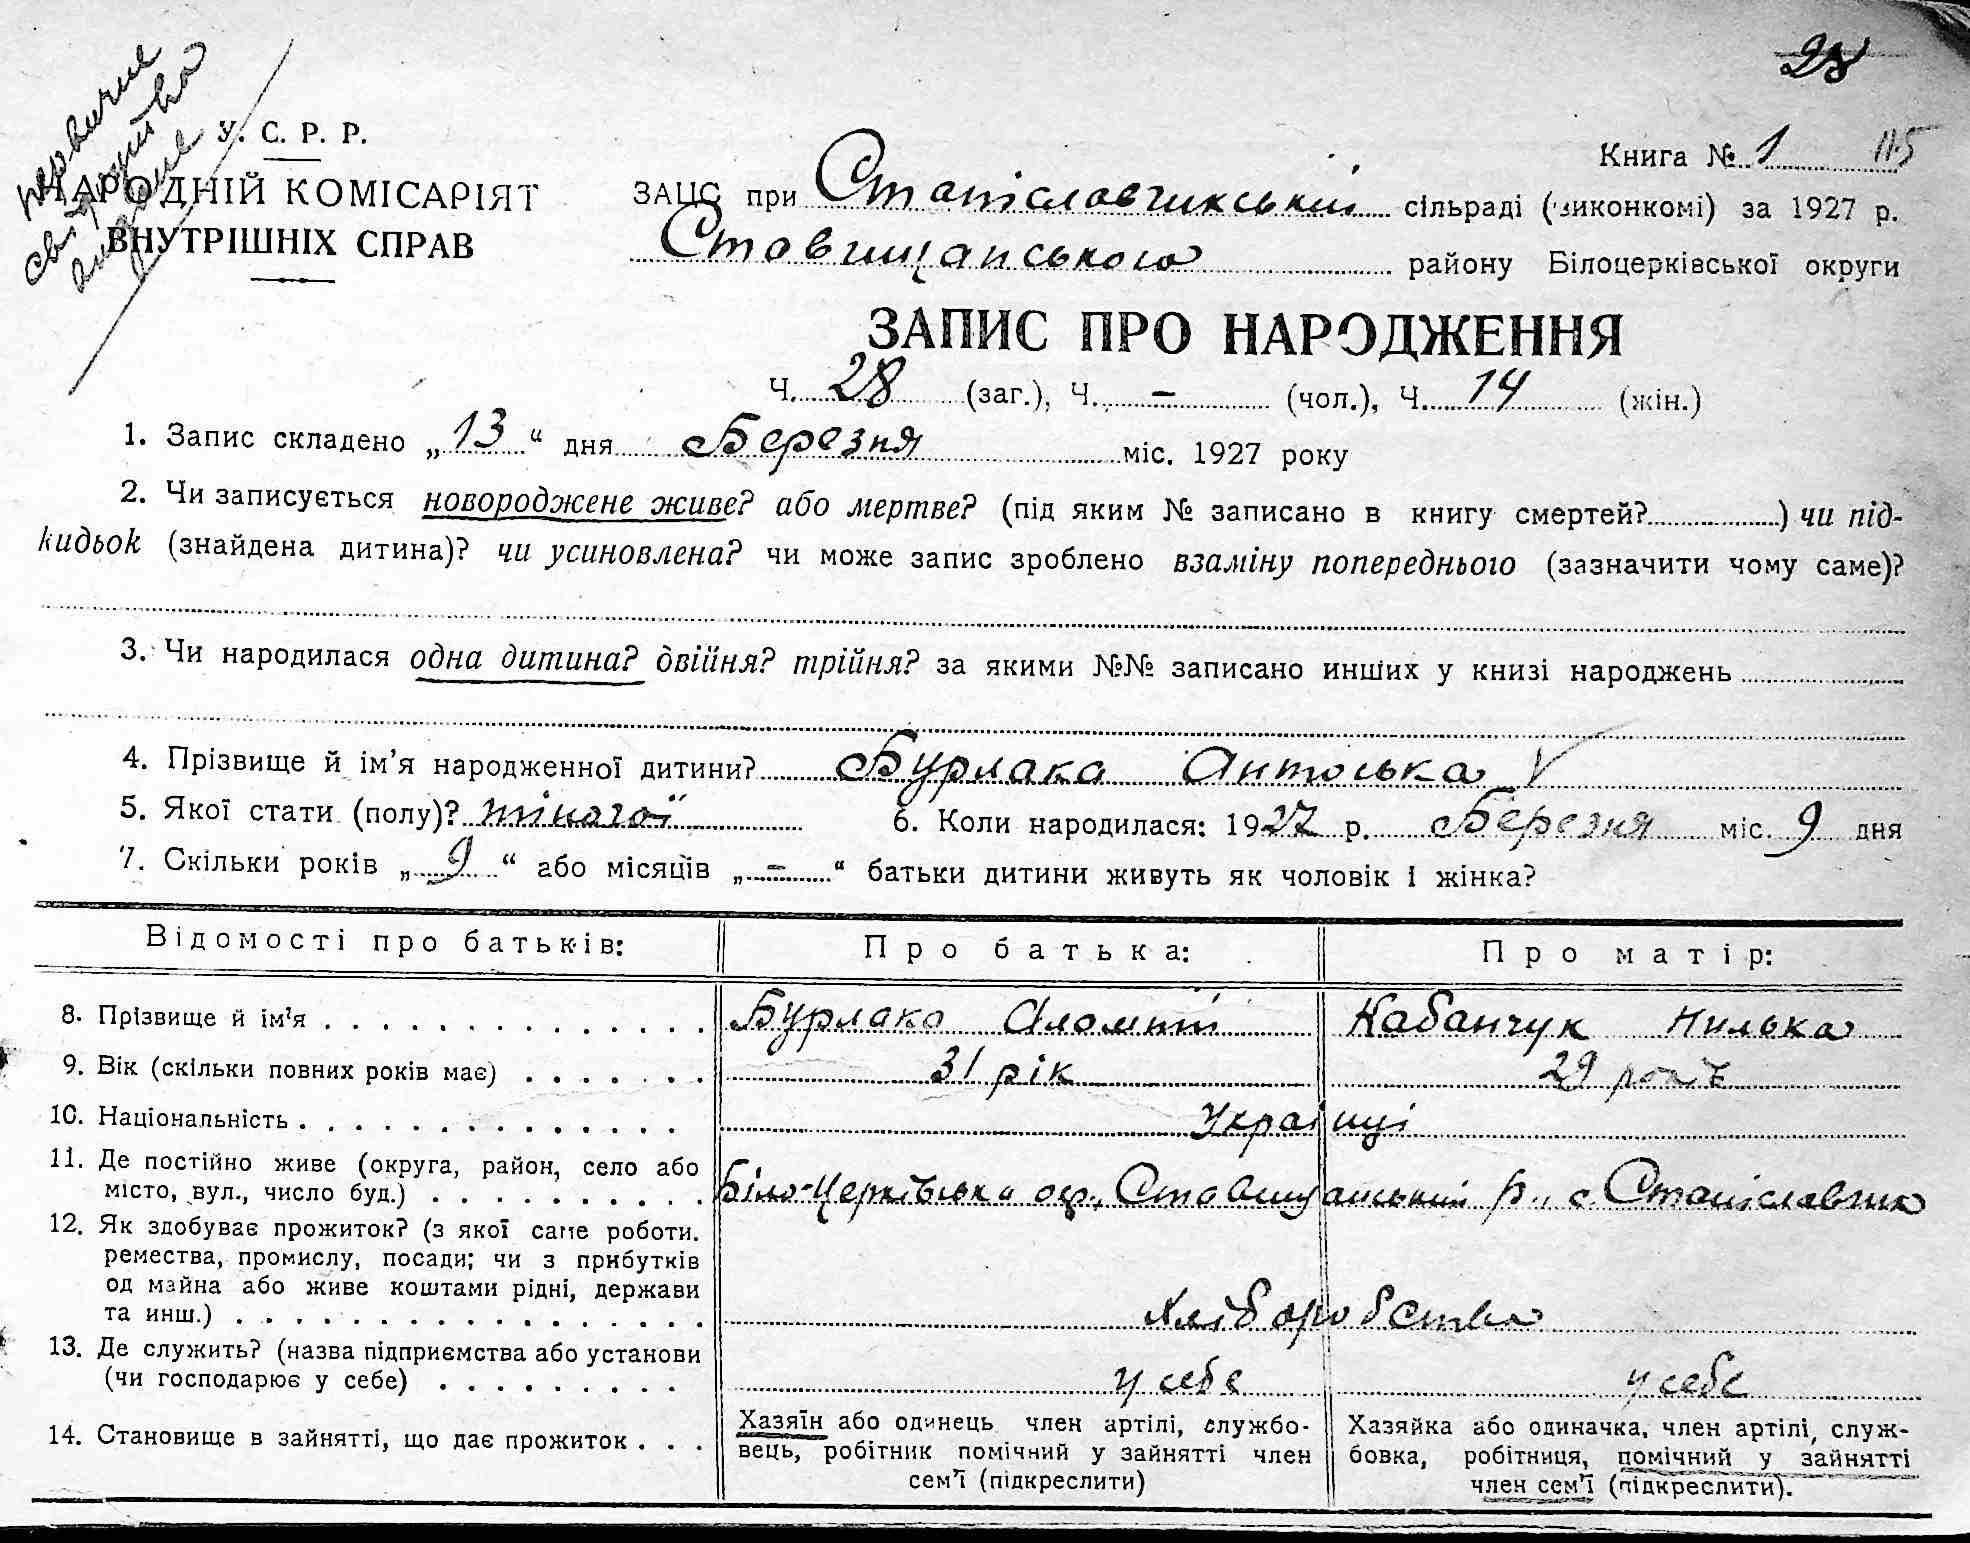 28
первичне
свідоцтво
видане
У. С. Р. Р.
НАРОДНІЙ КОМІСАРІЯТ
ВНУТРІШНІХ СПРАВ
Книга № 1 115
ЗАЦС при Станіславчикській сільраді (виконкомі) за 1927 р.
Ставищанського району Білоцерківської округи
ЗАПИС ПРО НАРОДЖЕННЯ
Ч. 28 (заг.), Ч. – (чол.), Ч. 14 (жін.)
1. Запис складено „13“ дня Березня міс. 1927 року
2. Чи записується новороджене живе? або мертве? (під яким № записано в книгу смертей?) чи під-
кидьок (знайдена дитина)? чи усиновлена? чи може запис зроблено взаміну попереднього (зазначити чому саме)?
3. Чи народилася одна дитина? двійня? трійня? за якими №№ записано инших у книзі народжень
4. Прізвище й ім'я народженної дитини? Бурлака Антоська V
5. Якої стати (полу)? жіночої 6. Коли народилася: 1927 р. Березня міс. 9 дня
7. Скільки років „9“ або місяців „–“ батьки дитини живуть як чоловік і жінка?
Відомості про батьків: Про батька: Про матір:
8. Прізвище й ім'я Бурлака Кабанчук Милька
9. Вік (скільки повних років має) 31 рік 29 років
10. Національність Українці
11. Де постійно живе (округа, район, село або
місто, вул., число буд.) Біло-Церківська окр., Ставищанський р., с. Станіславчик
12. Як здобуває прожиток? (з якої саме роботи.
ремества, промислу, посади; чи з прибутків
од майна або живе коштами рідні, держави
та инш.) Хліборобство
13. Де служить? (назва підприємства або установи
(чи господарює у себе) у себе у себе
14. Становище в зайнятті, що дає прожиток
Хазяїн або одинець член артілі, службо-
вець, робітник помічний у зайнятті член
сем'ї (підкреслити)
Хазяйка або одиначка, член артілі, служ-
бовка, робітниця, помічний у зайнятті
член сем'ї (підкреслити).